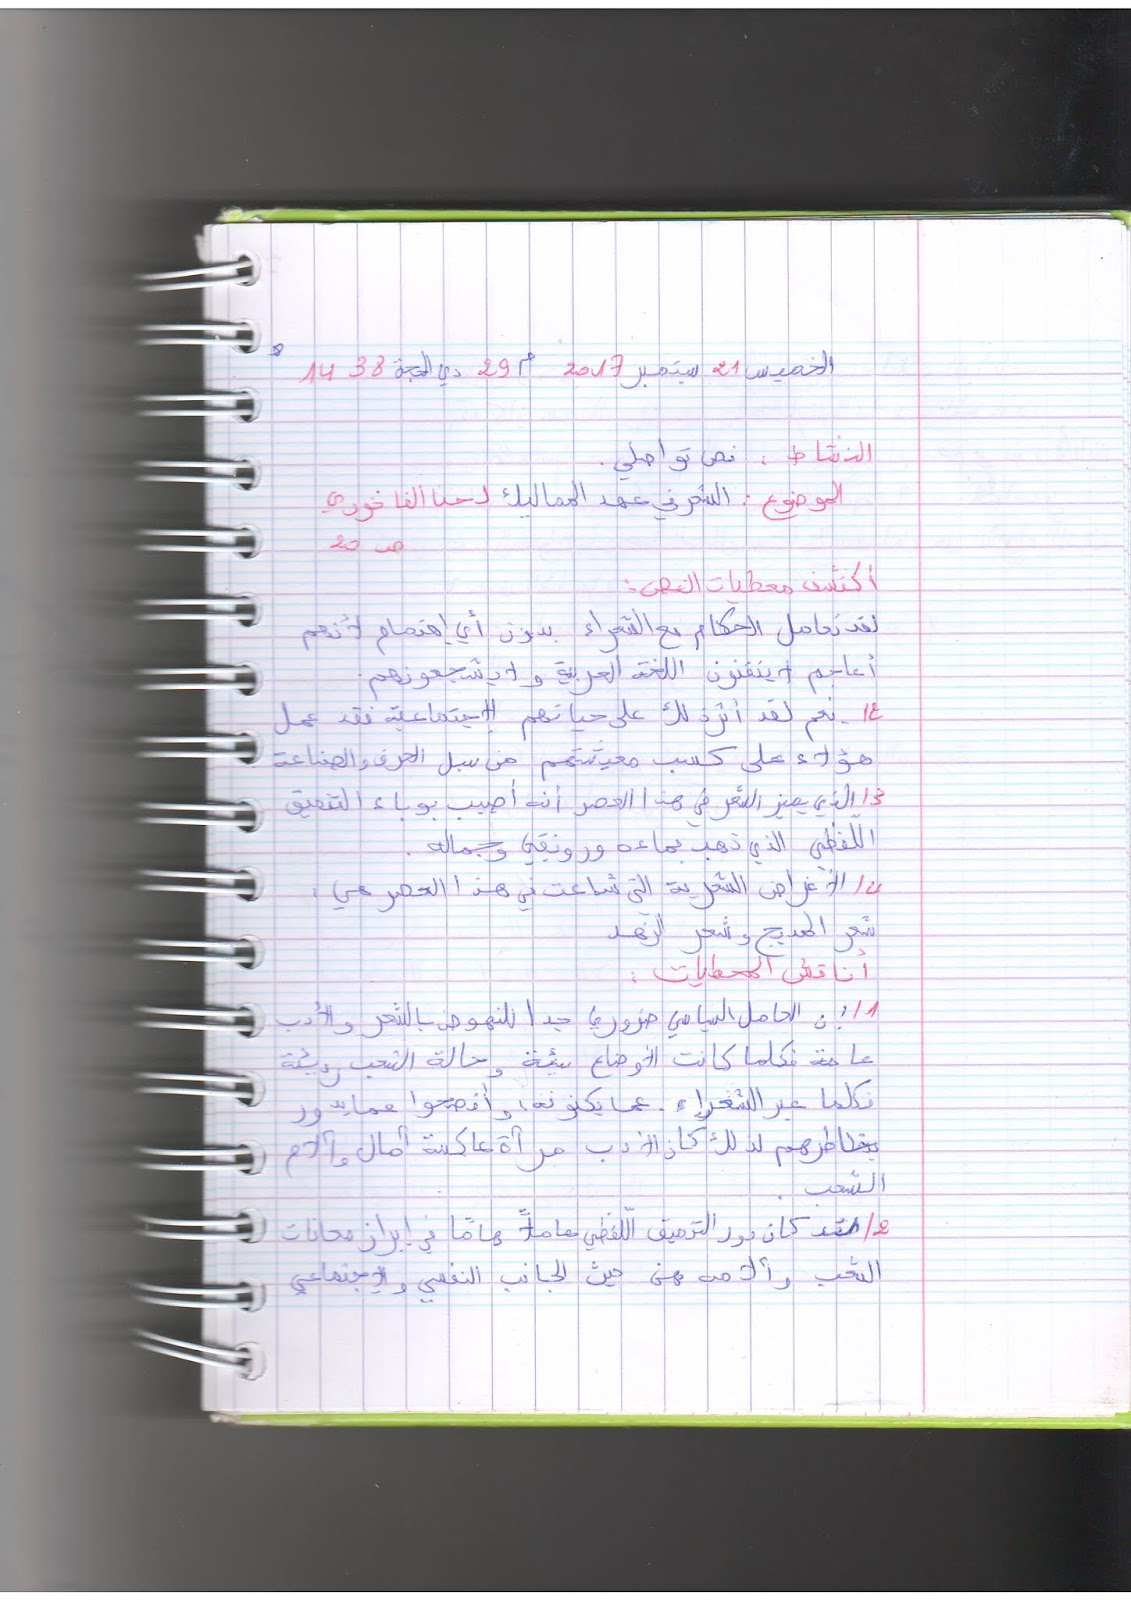 الخميس 21 سبتمبر 2017 م 29 ذي الحجة 1438 ه
النشاط : نص تواصلي .
الموضوع : الشعر في عهد المماليك لحنا الفاخوري
ص 20
أكتشف معطيات النص :
لقد تعامل الحكام مع الشعراء بدون أي إهتمام لأنهم
أعاجم لا يتقنون اللغة العربية ولا يشجعونهم .
2/ نعم لقد أثر ذلك على حياتهم الإجتماعية فقد عمل
هؤلاء على كسب معيشتهم من سبل الحرف والصناعة
3/ الذي يميز الشعر في هذا العصر أنه أصيب بوباء التنميق
اللّفظي الذي ذهب بماءه ورونقه وجماله .
4/ الأغراض الشعرية التي شاعت في هذا العصر هي :
شعر المديح وشعر الزهد
أناقش المعطيات :
1/ إن العامل السياسي ضروري جدا للنهوض بالشعر والأدب
عامة فكلما كانت الأوضاع سيئة وحالة الشعب رديئة
فكلما عبر الشعراء عما يكنونه وأفصحوا عما يدور
بخاطرهم لذلك كان الأدب مرآة عاكسة أمال وآلام
الشعب .
2/ لقد كان دور التنميق اللّفظي عاملاً هامًا في إبراز معانات
الشعب وألامه من حيث الجانب النفسي والإجتماعي